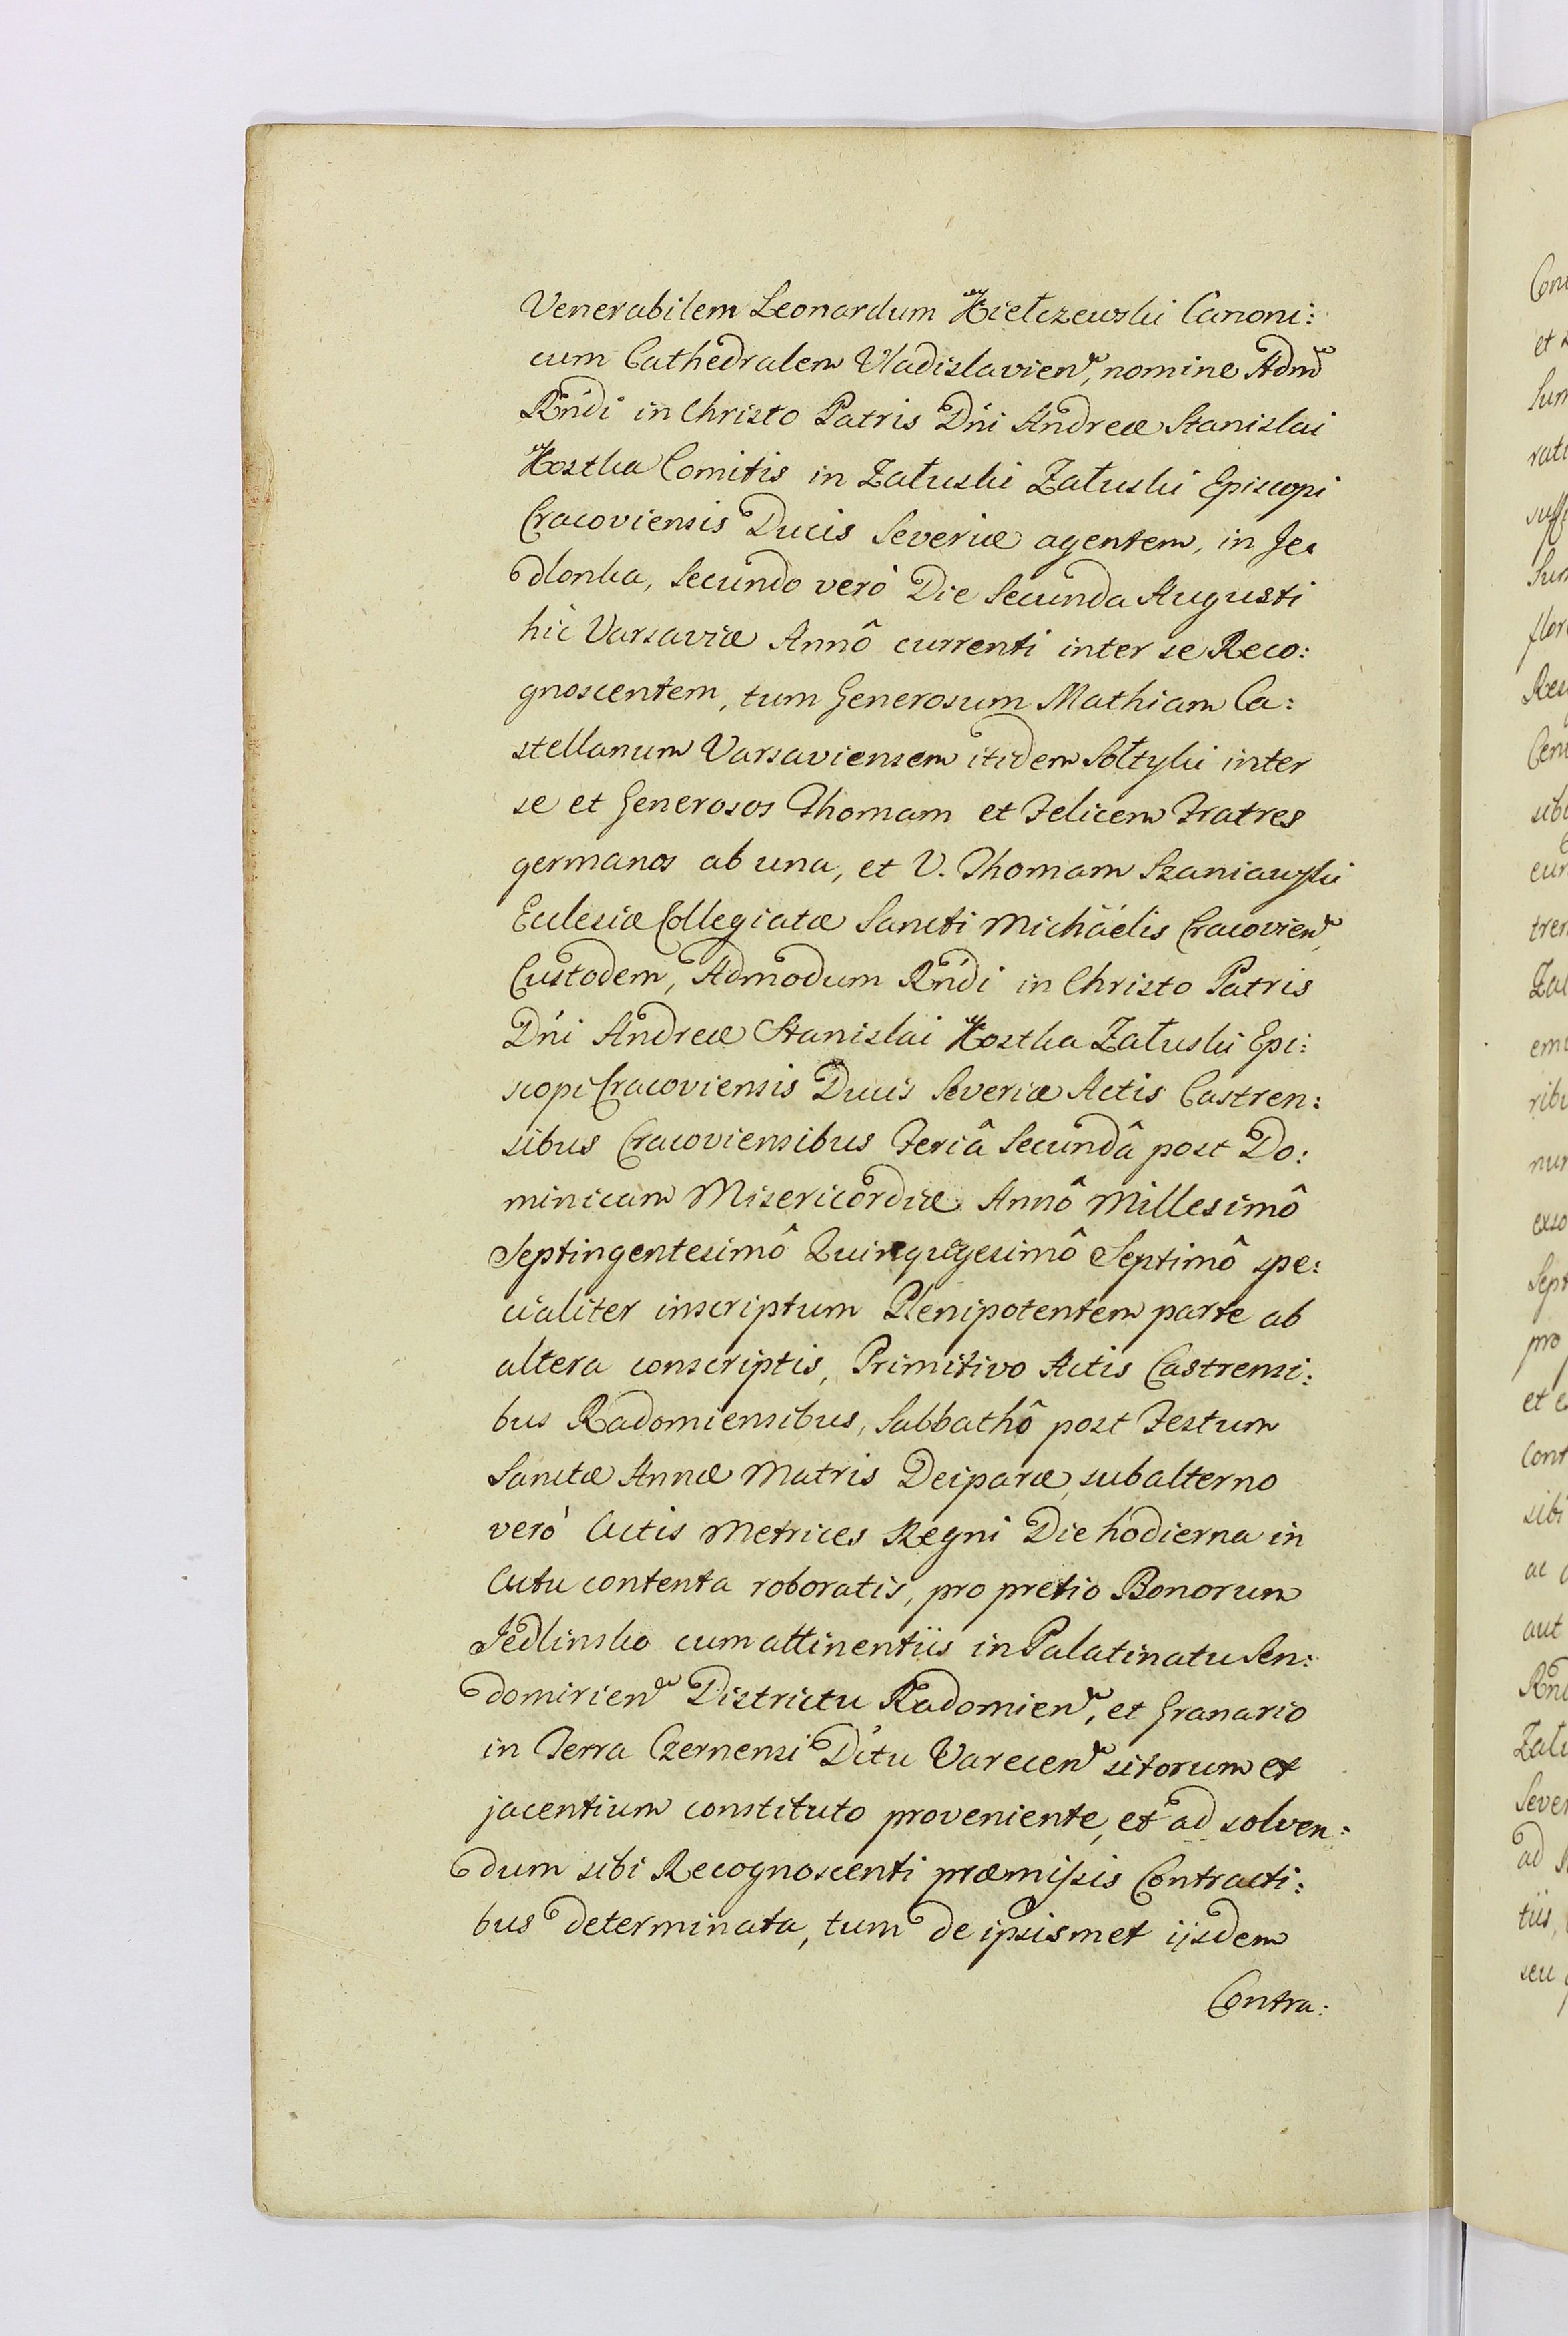 Venerabilem Leonardum Kiełczewski Canoni:
cum Cathedralem Vladislavien, nomine Adm
Rńdi in Christo Patris Dńi Andreæ Stanislai
Kostka Comitis in Załuski Załuski Episcopi
Cracoviensis Ducis Severiæ agentem, in Je
dlonka, Secundo verò Die Secunda Augusti
hic Varsaviæ Annô currenti inter se Reco:
gnoscentem, tum Generosum Mathiam Ca:
stellanum Varsaviensem itidem Sołtyki inter
se et Generosos Thomam et Felicem Fratres
germanos ab una, et V. Thomam Szaniawski
Ecclesiæ Collegiatæ Sancti Michäelis Cracovien,
Custodem, Admodum Rńdi in Christo Patris
Dńi Andreæ Stanislai Kostka Załuski Epi:
scopi Cracoviensis Ducis Severiæ Actis Castren:
sibus Cracoviensibus Feriâ Secundâ post Do:
minicam Misericordiæ Annô Millesimô
Septingentesimô Quinquagesimô Septimô spe:
cialiter inscriptum Plenipotentem parte ab
altera conscriptis, Primitivo Actis Castrensi:
bus Radomiensibus, Sabbathô post Festum
Sanctæ Annæ Matris Deiparæ, subalterno
verò Actis Metrices Regni Die hodierna in
Actu contenta roboratis, pro pretio Bonorum
Jedlinsko cum attinentiis in Palatinatu Sen:
domirien Districtu Radomien, et Granario
in Terra Czernensi Ditu Varecen sitorum et
jacentium constituto proveniente, et ad solven:
dum sibi Recognoscenti præmissis Contracti:
bus determinata, tum de ipsismet iisdem
Contra: